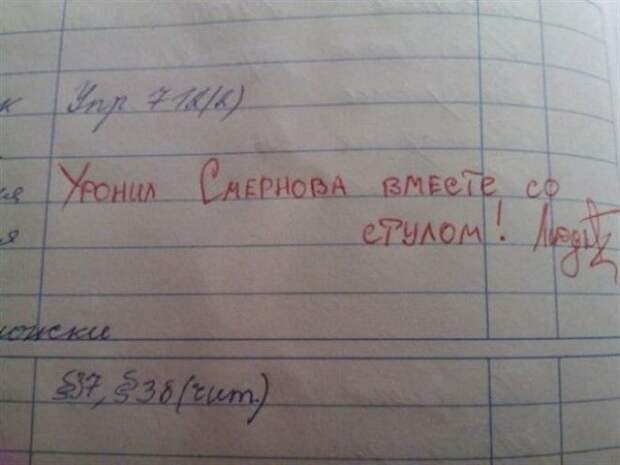 к Упр 712(2)
ия Уронил Смернова вместе со
я стулом!
ожски
§37, §38 (чит.)